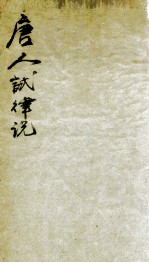 唐人試律说